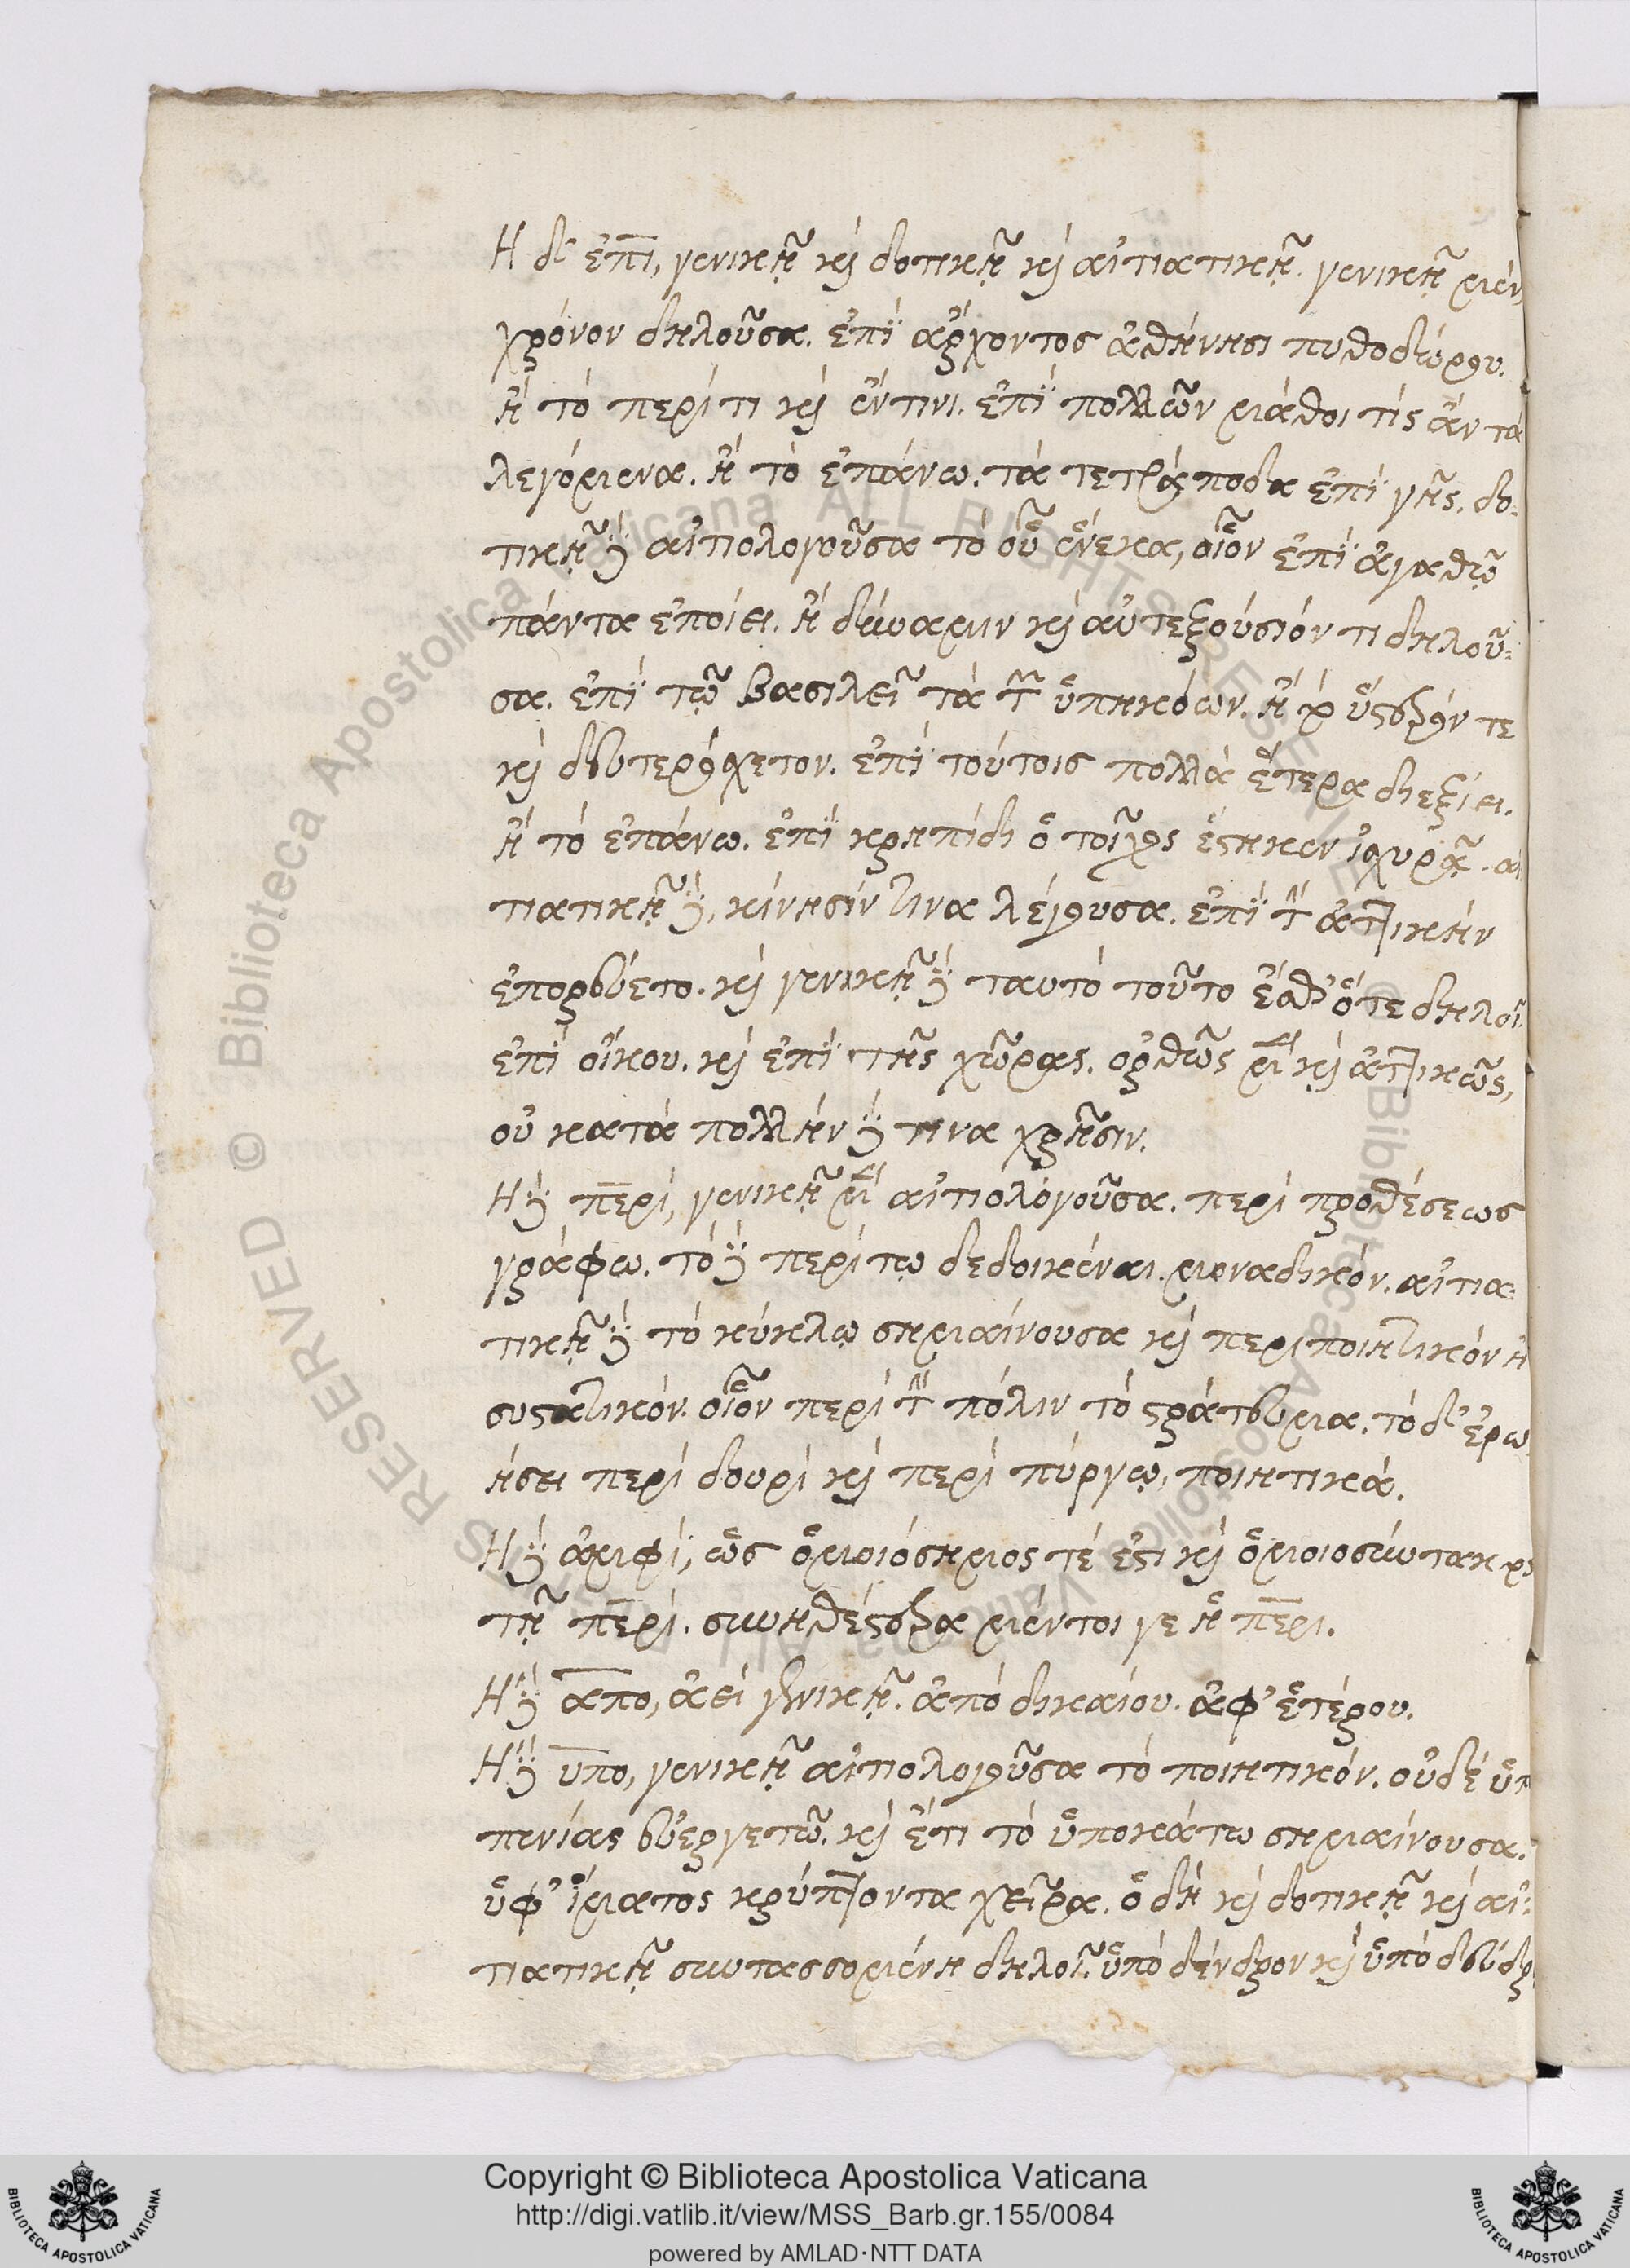 Ἡ δ' ἐπι, γενικῇ καὶ δοτικῇ καὶ αἰτιατικῇ. γενικῇ μὲν
χρόνον δηλοῦσα. ἐπὶ ἄρχοντος ἀθήνησι πυθοδώρου.
ἢ τὸ περί τι καὶ ἔν τινι. ἐπὶ πολλῶν μάθοι τίς ἂν τὰ
λεγόμενα. ἢ τὸ ἐπάνω. τὰ τετράποδα ἐπὶ γῆς. δο-
τικῇ δὲ αἰτιολογοῦσα τὸ οὗ ἕνεκα, οἷον ἐπὶ ἀγαθῷ
πάντα ἐποίει. ἢ δύναμιν καὶ αὐτεξούσιόν τι δηλοῦ-
σα. ἐπὶ τῷ βασιλεῖ τὰ τῶν ὑπηκόων. ἢ καὶ ὕστερόν τε
καὶ δευτερόχετον. ἐπὶ τούτοις πολλὰ ἕτερα διεξίει.
ἢ τὸ ἐπάνω. ἐπὶ κρηπίδι ὁ τοῖχος ἕστηκεν ἰσχυρᾷ. αἰ
τιατικῇ δὲ, κίνησίν τινα λέγουσα. ἐπὶ τὴν ἀττικὴν
ἐπορεύετο. καὶ γενικῇ δὲ ταυτὸ τοῦτο ἔσθ' ὅτε δηλοῖ.
ἐπὶ οἴκου. καὶ ἐπὶ τῆς χώρας. ὀρθῶς μὲν καὶ ἀττικῶς,
οὐ κατὰ πολλὴν δέ τινα χρῆσιν.
Ἡ δὲ περὶ, γενικῇ μὲν αἰτιολογοῦσα. περὶ προθέσεως
γράφω. τὸ δὲ περί τῳ δεδοικέναι. μοναδικόν. αἰτια-
τικῇ δὲ τὸ κύκλῳ σημαίνουσα καὶ περιποιητικόν ἢ
συστατικόν. οἷον περὶ τὴν πόλιν τὸ στράτευμα. τὸ δ' ἐρω
ήσει περὶ δουρὶ καὶ περὶ πύργῳ, ποιητικά.
Ἡ δὲ ἀμφὶ, ὡς ὁμοιόσημος τέ ἐστι καὶ ὁμοιοσύντακ
τῇ περὶ. συνηθέστερα μέντοι γε ἡ περι.
Ἡ δὲ απο, ἀεὶ γενικῇ. ἀπὸ δικαίου. ἀφ' ἑτέρου.
Ἡ δὲ υπο, γενικῇ αἰτιολογοῦσα τὸ ποιητικόν. οὐδὲ ὑπ
πενίας εὐεργετῶ. καὶ ἔτι τὸ ὑποκάτω σημαίνουσα.
ὑφ' εἵματος κρύπτοντα χεῖρα. ὃ δὴ καὶ δοτικῇ καὶ αἰ-
τιατικῇ συντασσομένη δηλοῖ. ὑπὸ δένδρον καὶ ὑπὸ δένδρ